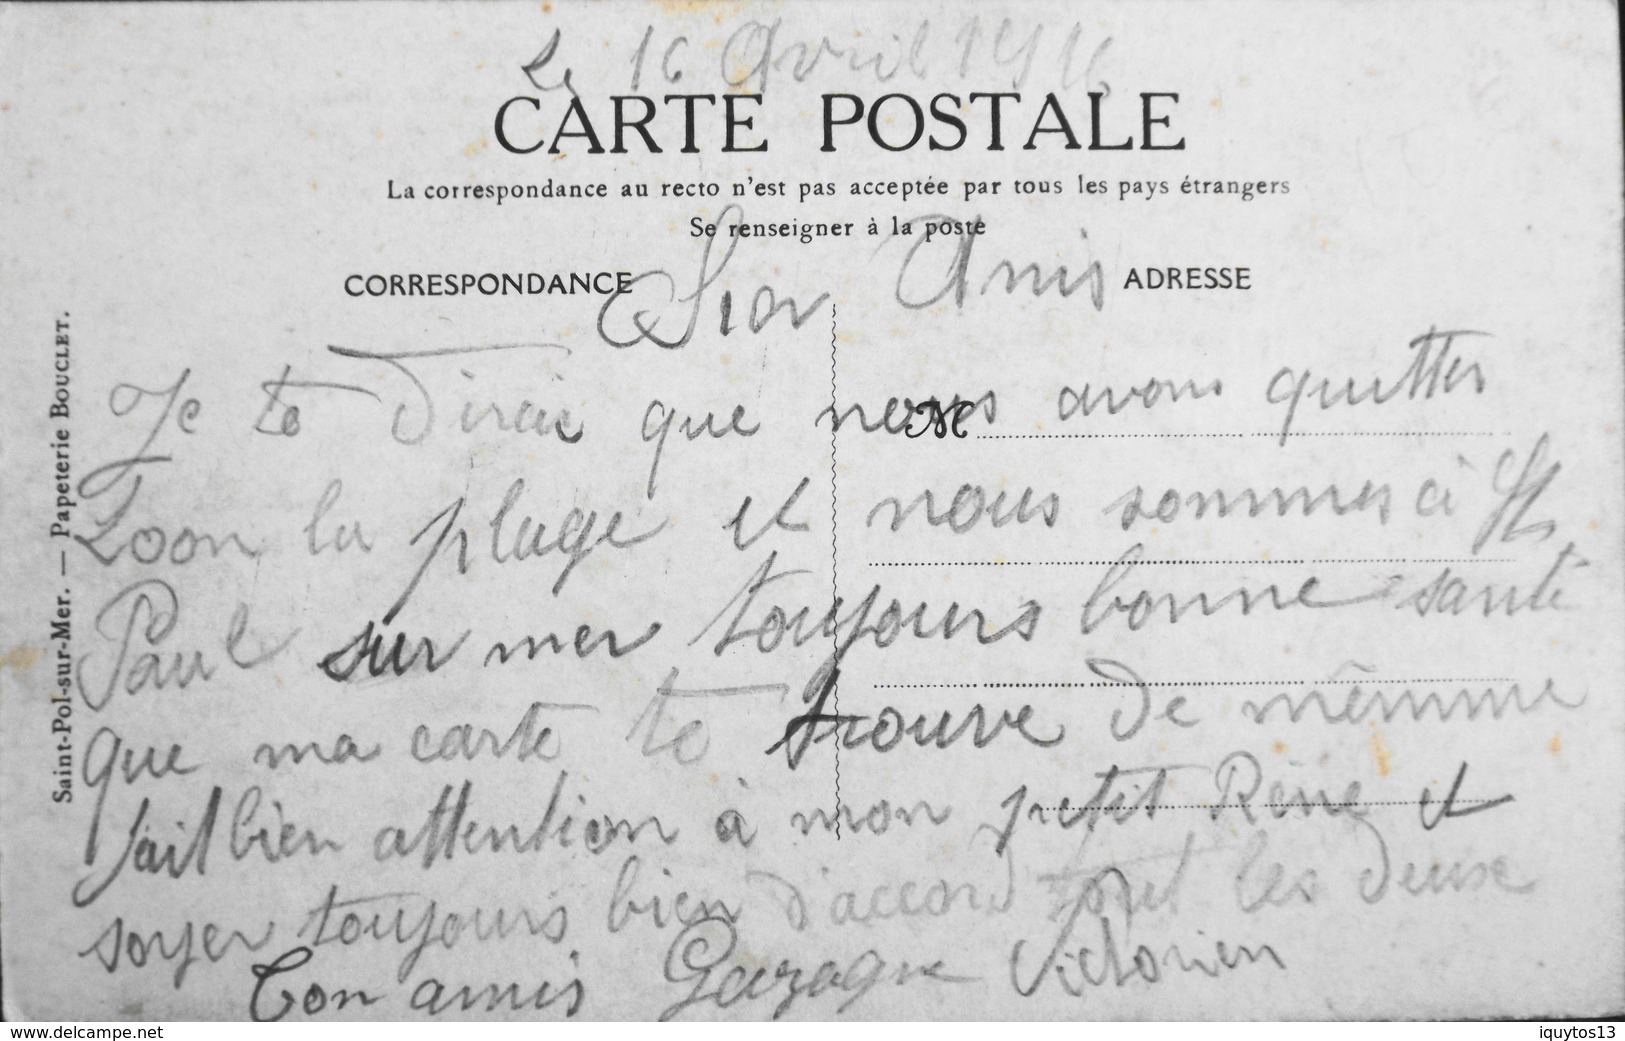 Le 16 Avril 1916
CARTE POSTALE
La correspondance au recto n'est pas acceptée par tous les pays étrangers
Se renseigner à la poste
CORRESPONDANCE
ADRESSE
Amis
Je te dirai que nous avons quitter
M
Loon la plage et nous sommes à St
Paul sur mer toujours bonne santé
que ma carte te trouve de mêmme
fait bien attention à mon petit Réné et
soyer toujours bien d'accord tout les deux
Ton amis Gazagne Victorien
Saint-Pol-sur-Mer. — Papeterie BOUCLET.
www.delcampe.net
iquytos13